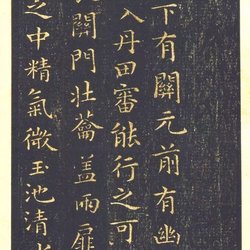 下有關元前有幽
入丹田審能行之可
關門壯蘥盖兩扉
之中精氣微玉池清水